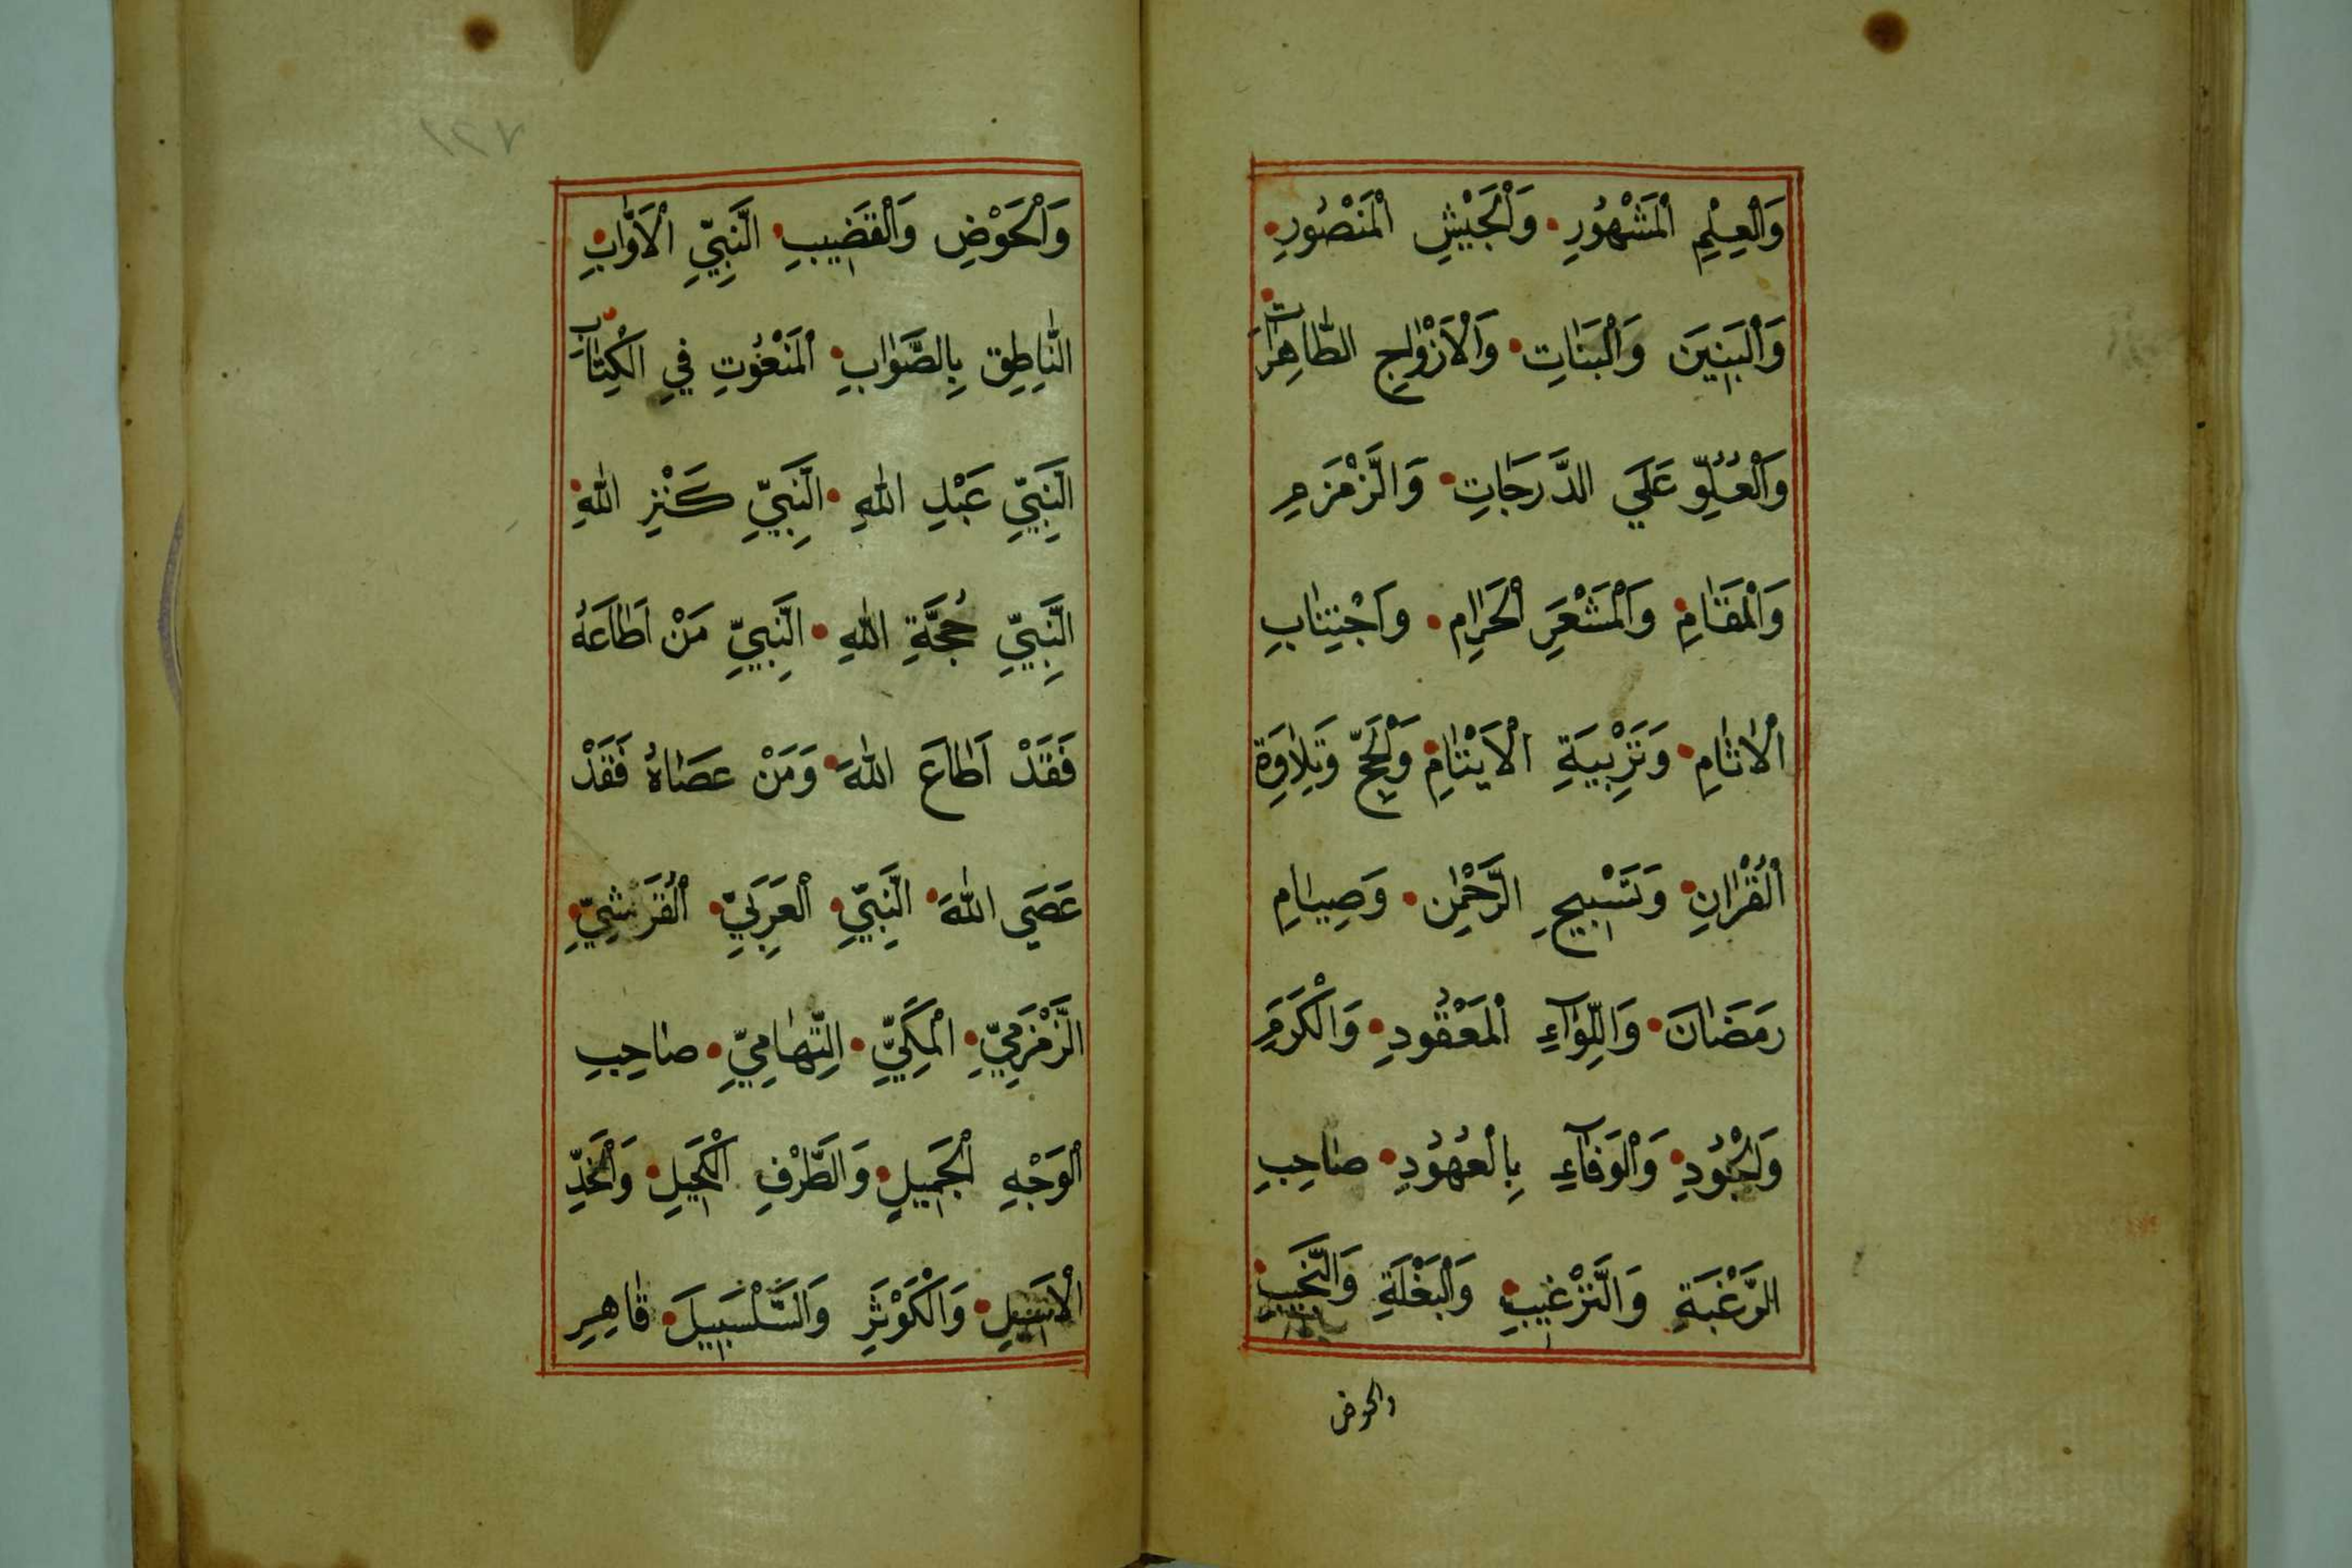 وَالْعِلْمِ الْمَشْهُورِ • وَالْجَيْشِ الْمَنْصُورِ •
وَالْبَنِينَ وَالْبَنَاتِ • وَالْاَزْوَاجِ الطَّاهِرَاتِ •
وَالْعُلُوِّ عَلَي الدَّرَجَاتِ • وَالزَّمْزَمِ
وَالْمَقَامِ • وَالْمَشْعَرِ الْحَرَامِ • وَاجْتِنَابِ
الْاٰثَامِ • وَتَرْبِيَةِ الْاَيْتَامِ • وَالْحَجِّ وَتِلَاوَةِ
الْقُرْاٰنِ • وَتَسْبِيحِ الرَّحْمٰنِ • وَصِيَامِ
رَمَضَانَ • وَاللِّوَآءِ الْمَعْقُودِ • وَالْكَرَمِ
وَالْجُودِ • وَالْوَفَآءِ بِالْعُهُودِ • صَاحِبِ
الرَّغْبَةِ وَالتَّرْغِيبِ • وَالْبَغْلَةِ وَالنَّجِيبِ •
والحوض
١٢٧
وَالْحَوْضِ وَالْقَضِيبِ • النَّبِيِّ الْاَوَّابِ •
النَّاطِقِ بِالصَّوَابِ • الْمَنْعُوتِ فِي الْكِتَابِ •
النَّبِيِّ عَبْدِ اللّٰهِ • النَّبِيِّ كَنْزِ اللّٰهِ •
النَّبِيِّ حُجَّةِ اللّٰهِ • النَّبِيِّ مَنْ اَطَاعَهُ
فَقَدْ اَطَاعَ اللّٰهَ • وَمَنْ عَصَاهُ فَقَدْ
عَصَي اللّٰهَ • النَّبِيِّ • الْعَرَبِيِّ • الْقُرَشِيِّ •
الزَّمْزَمِيِّ • الْمَكِّيِّ • التِّهَامِيِّ • صَاحِبِ
الْوَجْهِ الْجَمِيلِ • وَالطَّرْفِ الْكَحِيلِ • وَالْخَدِّ
الْاَسِيلِ • وَالْكَوْثَرِ وَالسَّلْسَبِيلَ • قَاهِرِ